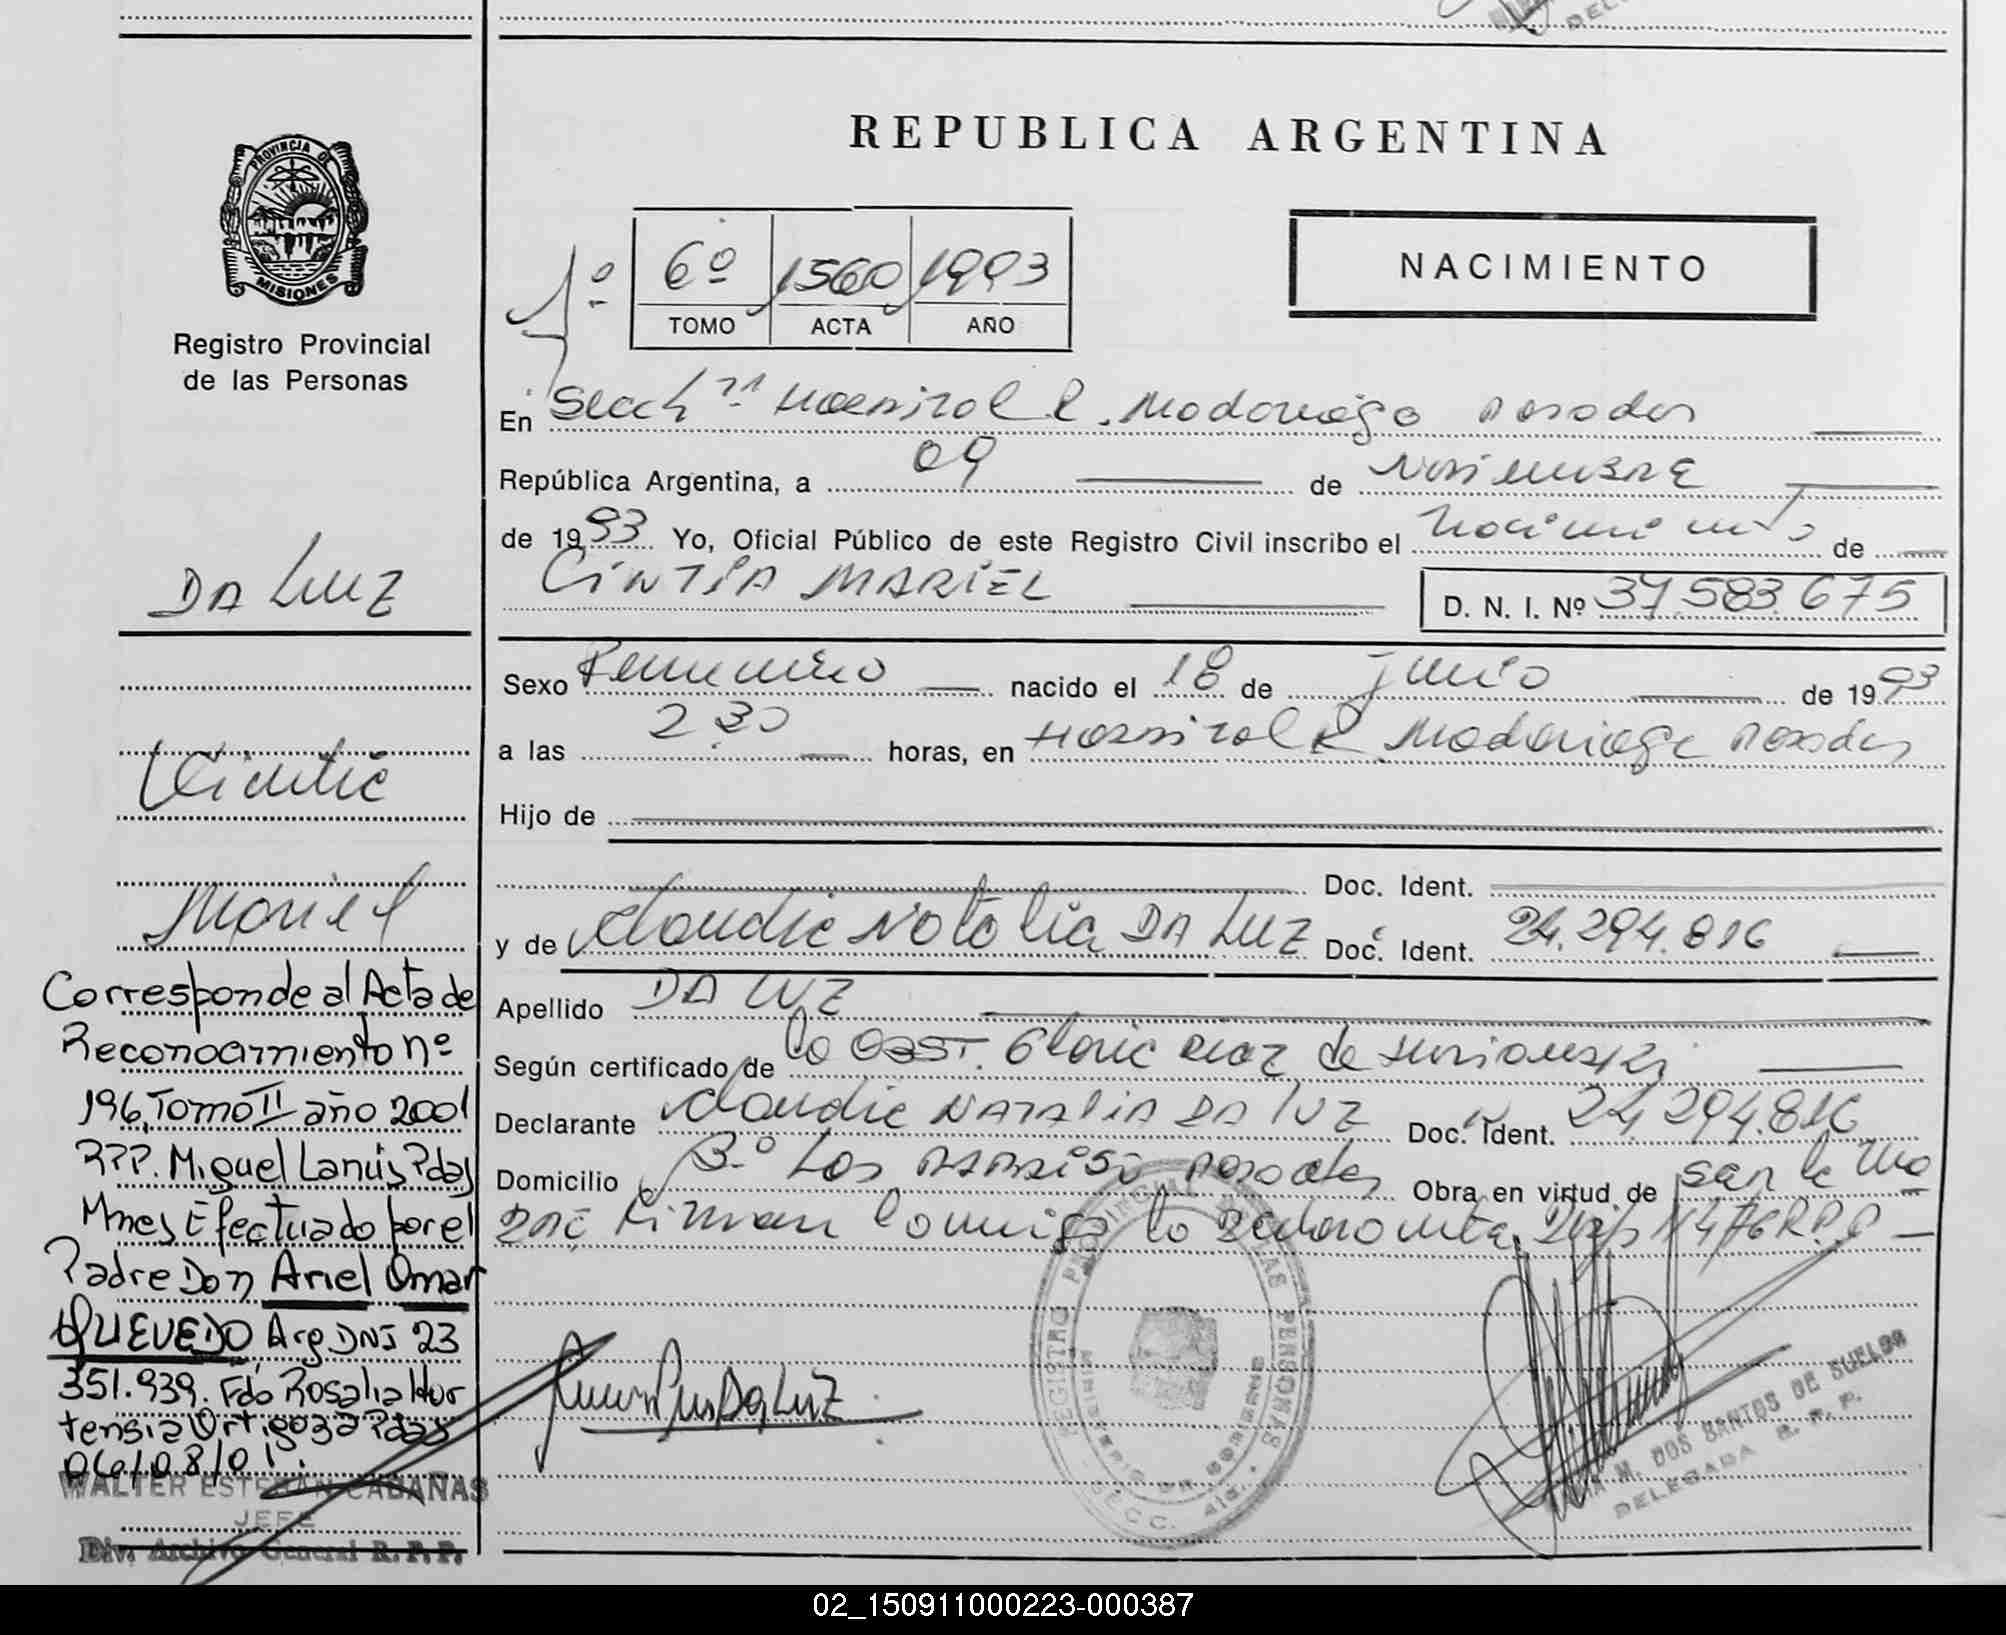 REPUBLICA ARGENTINA
PROVINCIA DE
MISIONES
Registro Provincial
de las Personas
1º
6º 1560 1993
TOMO ACTA AÑO
NACIMIENTO
En Secc Hospital R. Madariaga Posadas
República Argentina, a 09 de Noviembre
de 1993 Yo, Oficial Público de este Registro Civil inscribo el Nacimiento de
CINTIA MARIEL
D. N. I. Nº 37.583.675
Sexo Femenino nacido el 18 de junio de 1993
a las 2.30 horas, en Hospital R. Madariaga Posadas
Hijo de
Doc. Ident.
y de Claudia Natalia DA LUZ Doc. Ident. 24.294.816
Apellido DA LUZ
Según certificado de la OBST. Gloria Diaz de
Declarante Claudia NATALIA DA LUZ Doc. Ident. 24.294.816
Domicilio Bº Los Posadas Obra en virtud de ser la Ma
dre, Firman conmigo la Declarante. R.P.P
DA LUZ
Cintia
Mariel
Corresponde al Acta de
Reconocimiento nº
196, Tomo II año 2001
RPP. Miguel Lanús Pdas
Mnes Efectuado por el
Padre Don Ariel Omar
QUEVEDO Arg DNI 23
351.939. Fdo Rosalia Hor
tensia Ortigoza Pdas
06/08/01.
WALTER ESTEBAN CABAÑAS
JEFE
Div. Archivo General R. P. P.
Da Luz
REGISTRO PROVINCIAL DE LAS PERSONAS
MINISTERIO DE GOBIERNO
SECC.
M. DOS SANTOS DE SUELDO
DELEGADA R. P. P.
02_150911000223-000387